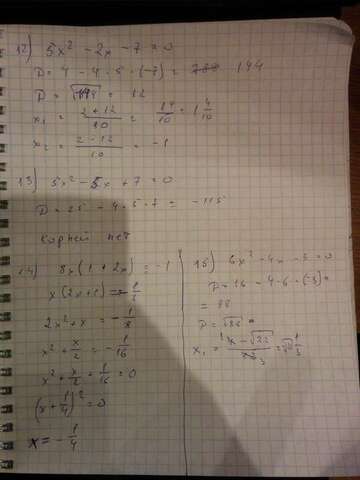 12) 5x² - 2x - 7 = 0
D = 4 - 4 · 5 · (-7) = 144
D = √144 = 12
x₁ = (2+12)/10 = 14/10 = 1 4/10
x₂ = (2-12)/10 = -1
13) 5x² - 5x + 7 = 0
D = 25 - 4·5·7 = -115
корней нет
14) 8x(1+2x) = -1
x(2x+1) = -1/8
2x² + x = -1/8
x² + x/2 = -1/16
x² + x/2 = 1/16 = 0
(x + 1/4)² = 0
x = -1/4
15) 6x² - 4x - 3 = 0
D = 16 - 4·6·(-3) =
= 88
D = √88